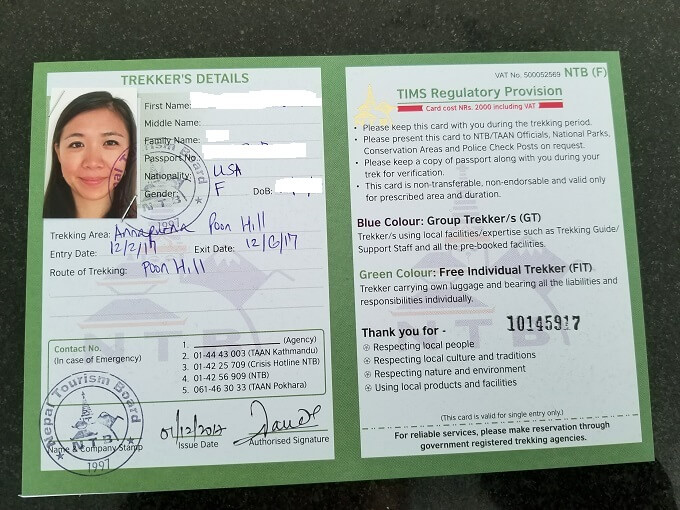 TREKKER'S DETAILS
First Name:
Middle Name:
Family Name:
Passport No.
Nationality: USA
Gender: F DoB:
Trekking Area: Annapurna Poon Hill
Entry Date: 12/2/17 Exit Date: 12/6/17
Route of Trekking: Poon Hill
Contact No.
(In case of Emergency)
1. (Agency)
2. 01-44 43 003 (TAAN Kathmandu)
3. 01-42 25 709 (Crisis Hotline NTB)
4. 01-42 56 909 (NTB)
5. 061-46 30 33 (TAAN Pokhara)
Nepal Tourism Board
NTB
1997
Name & Company Stamp
01/12/2017
Issue Date
Authorised Signature
VAT No. 500052569 NTB (F)
TIMS Regulatory Provision
Card cost NRs. 2000 including VAT
• Please keep this card with you during the trekking period.
• Please present this card to NTB/TAAN Officials, National Parks,
Conservation Areas and Police Check Posts on request.
• Please keep a copy of passport along with you during your
trek for verification.
• This card is non-transferable, non-endorsable and valid only
for prescribed area and duration.
Blue Colour: Group Trekker/s (GT)
Trekker/s using local facilities/expertise such as Trekking Guide/
Support Staff and all the pre-booked facilities.
Green Colour: Free Individual Trekker (FIT)
Trekker carrying own luggage and bearing all the liabilities and
responsibilities individually.
Thank you for -
10145917
Respecting local people
Respecting local culture and traditions
Respecting nature and environment
Using local products and facilities
(This card is valid for single entry only.)
For reliable services, please make reservation through
government registered trekking agencies.